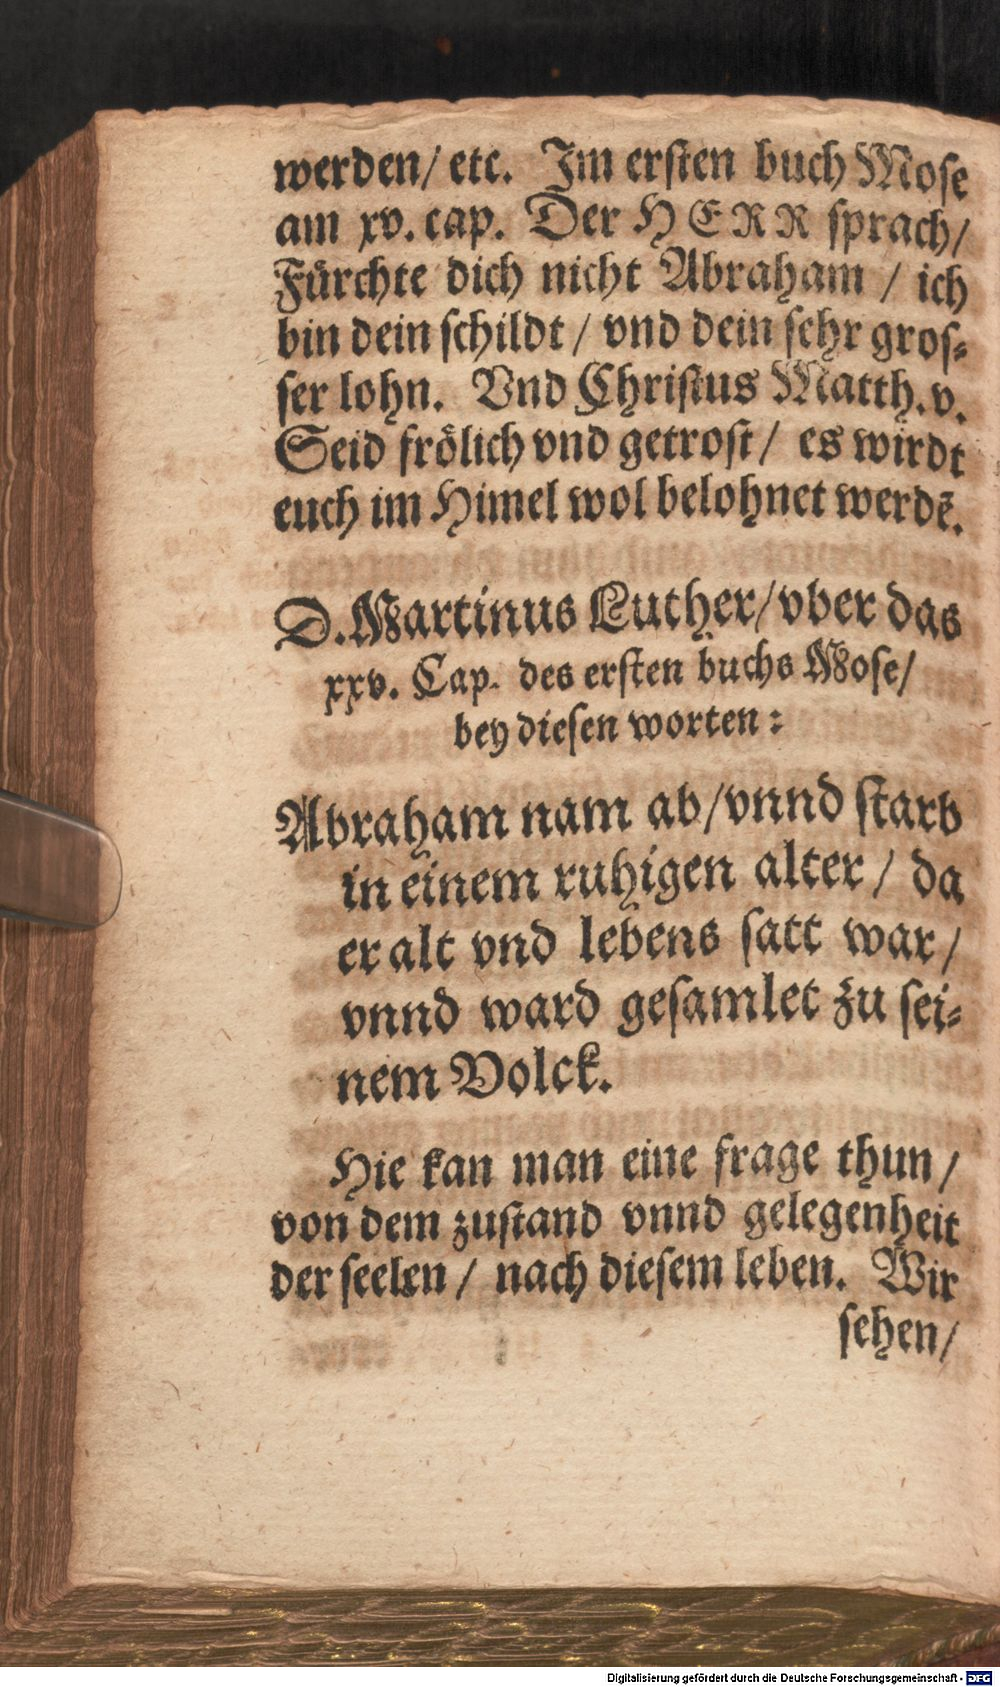 werden/ etc. Im ersten buch Mose
am xv. cap. Der HERR sprach/
Fürchte dich nicht Abraham / ich
bin dein schildt / vnd dein sehr gros-
ser lohn. Vnd Christus Matth. v.
Seid frölich vnd getrost / es wirdt
euch im Himel wol belohnet werdē.
D. Martinus Luther/ vber das
xxv. Cap. des ersten buchs Mose/
bey diesen worten:
Abraham nam ab/ vnnd starb
in einem ruhigen alter / da
er alt vnd lebens satt war /
vnnd ward gesamlet zu sei-
nem Volck.
Hie kan man eine frage thun /
von dem zustand vnnd gelegenheit
der seelen / nach diesem leben. Wir
sehen/
Digitalisierung gefördert durch die Deutsche Forschungsgemeinschaft - DFG